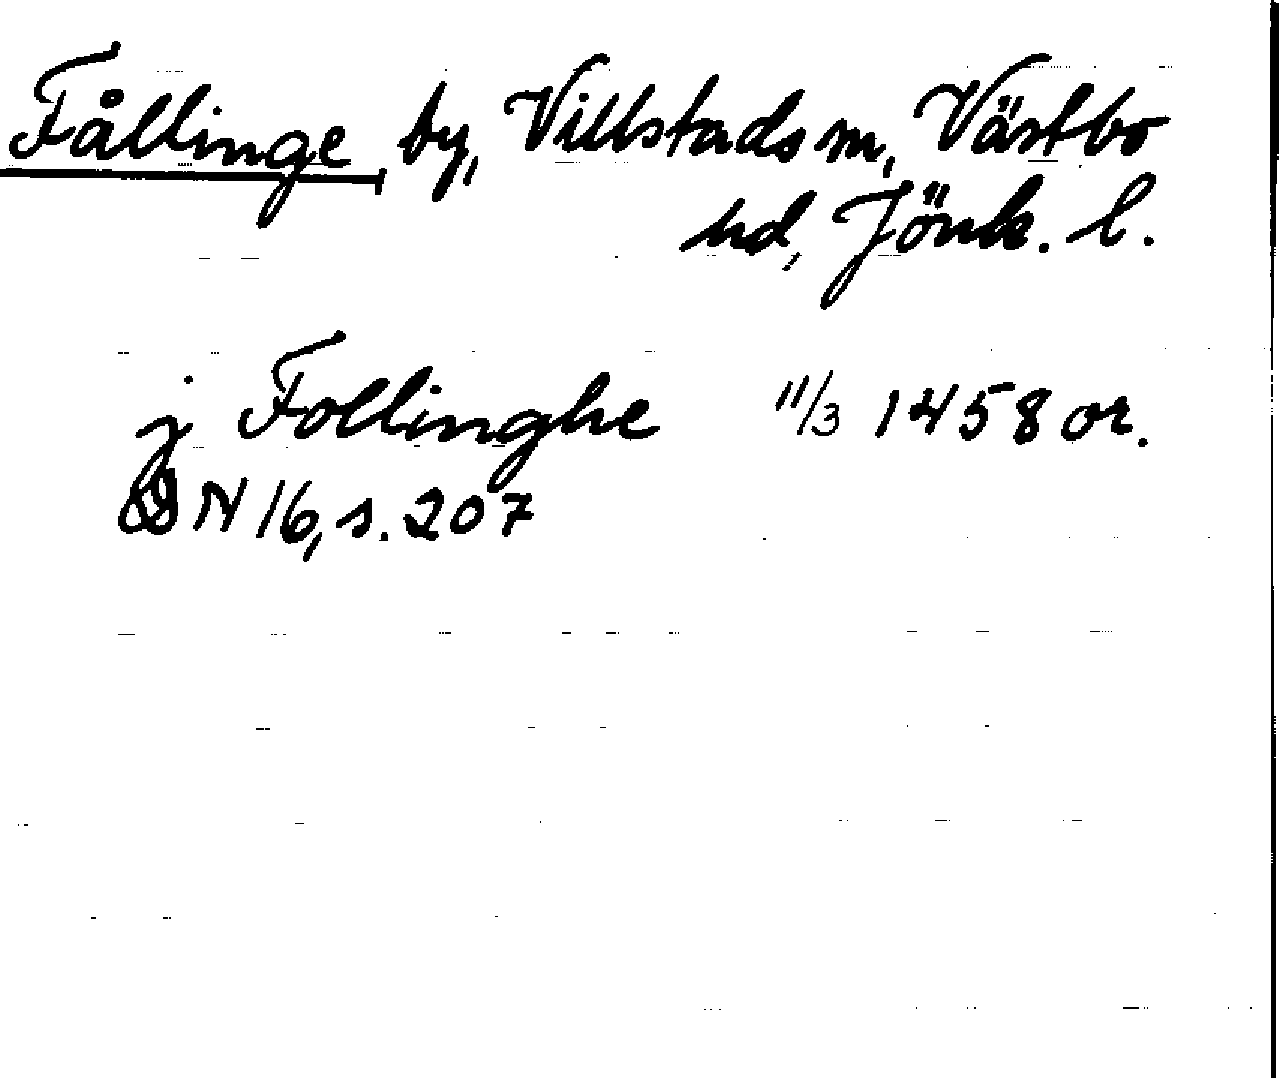 Fållinge by, Villstads sn, Västbo
hd, Jönk. l.
j Follinghe 11/3 1458 or.
DN 16, s. 207